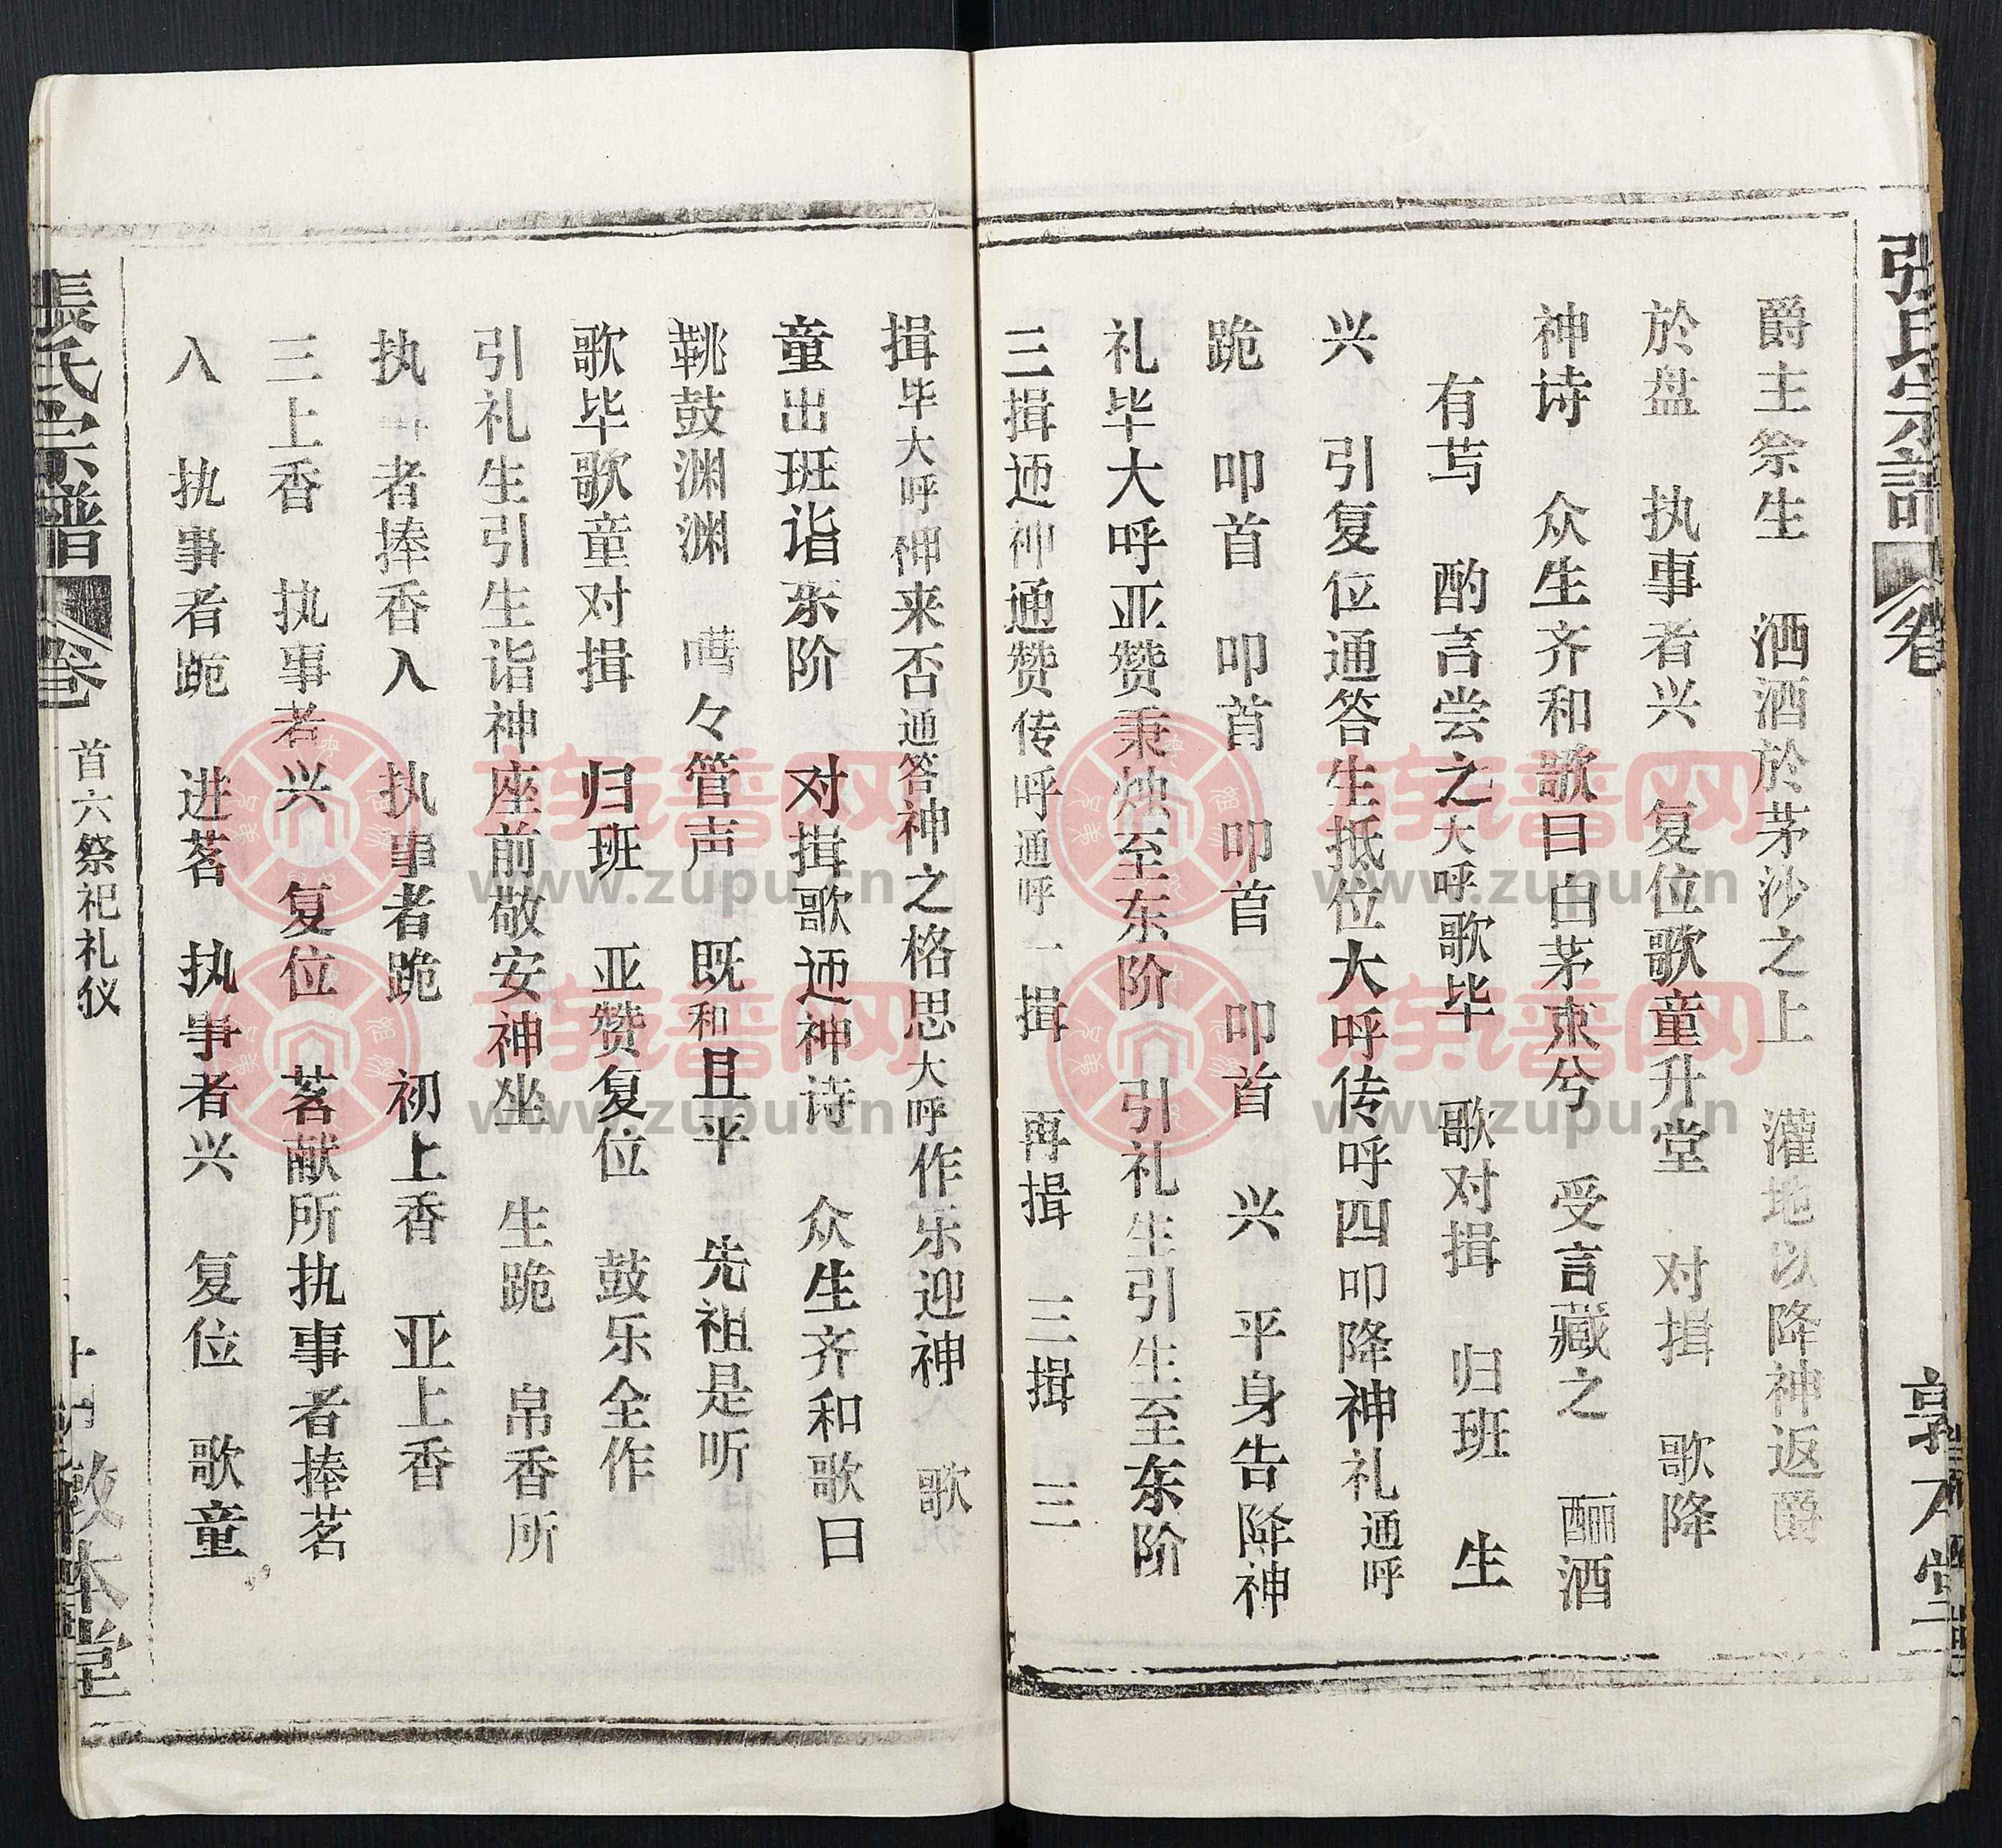 爵主祭生　洒酒於茅沙之上　灌地以降神返爵
於盘　执事者兴　复位歌童升堂　对揖　歌降
神诗　众生齐和歌曰白茅束兮　受言藏之　酾酒
有芎　酌言尝之大呼歌毕　歌对揖　归班　生
兴　引复位通答生抵位大呼传呼四叩降神礼通呼
跪　叩首　叩首　叩首　叩首　兴　平身告降神
礼毕大呼亚赞秉烛至东阶　引礼生引生至东阶
三揖迊神通赞传呼通呼一揖　再揖　三揖　三
揖毕大呼神来否通答神之格思大呼作乐迎神　歌
童出班诣东阶　对揖歌迊神诗　众生齐和歌曰
鞉鼓渊渊　嘒々管声　既和且平　先祖是听
歌毕歌童对揖　归班　亚赞复位　鼓乐全作
引礼生引生诣神座前敬安神坐　生跪　帛香所
执事者捧香入　执事者跪　初上香　亚上香
三上香　执事者兴　复位　茗献所执事者捧茗
入　执事者跪　进茗　执事者兴　复位　歌童
張氏宗譜
卷
首六祭祀礼仪
敦本堂
族谱网
www.zupu.cn